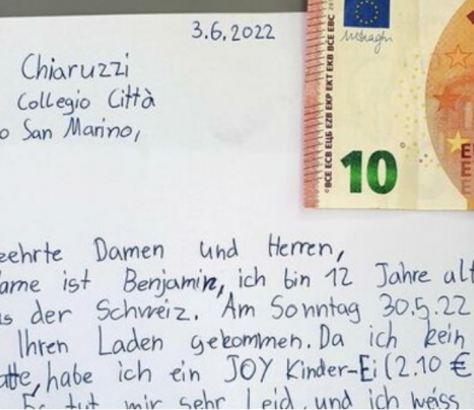 3.6.2022
Chiaruzzi
Collegio Città
o San Marino,
BCE ECB ЕЦБ EZB EKP EKT EKB BCE EBC
10
eehrte Damen und Herren,
ame ist Benjamin, ich bin 12 Jahre alt
s der Schweiz. Am Sonntag 30.5.22
Ihren Laden gekommen. Da ich kein
atte, habe ich ein JOY Kinder-Ei (2.10 €
Es tut mir sehr Leid, und ich weiss